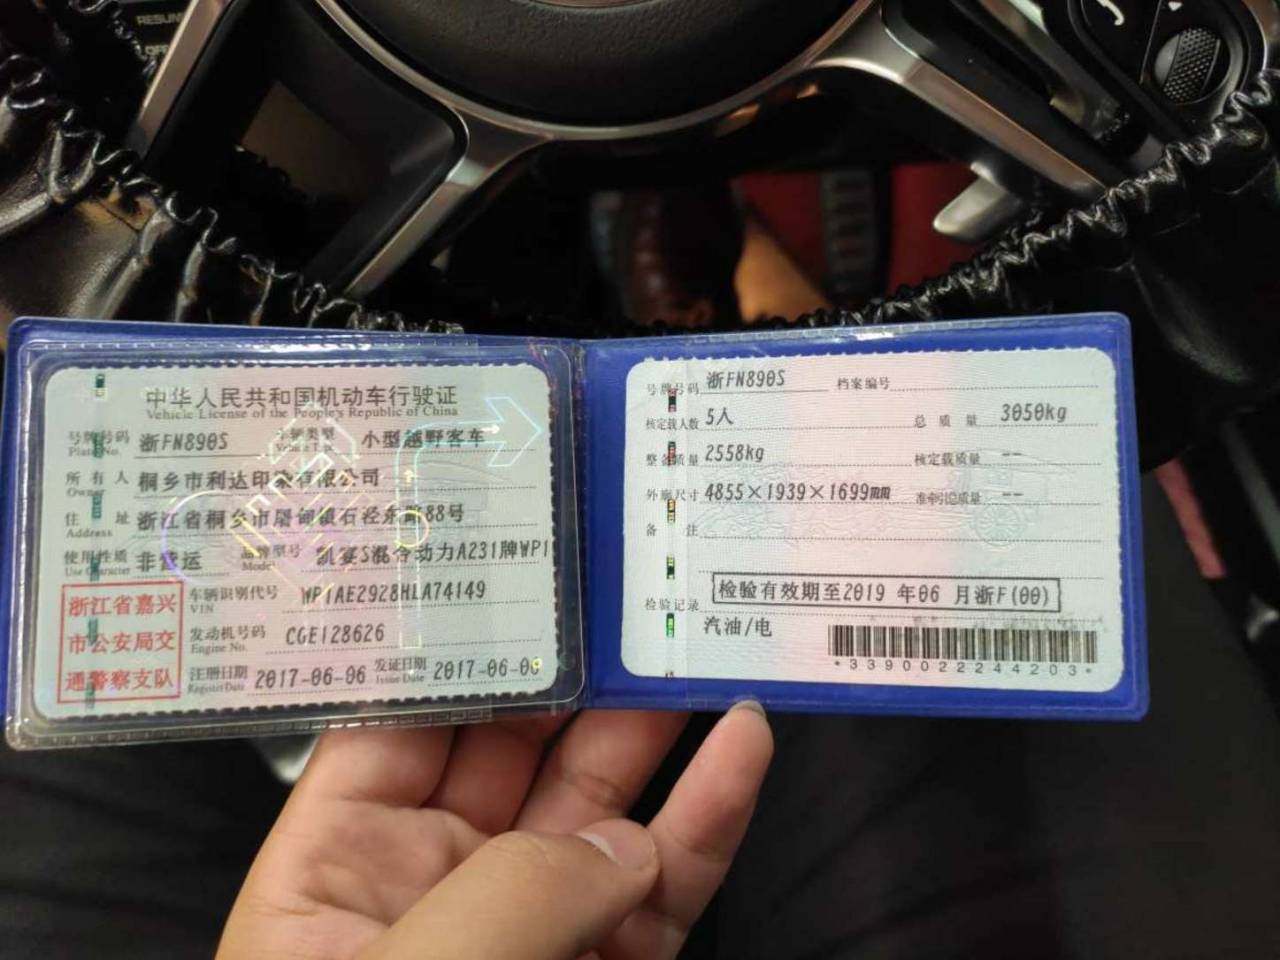 RESUME
中华人民共和国机动车行驶证
Vehicle License of the People's Republic of China
号牌号码 浙FN890S 车辆类型 小型越野客车
Plate No. Vehicle Type
所有人 桐乡市利达印染有限公司
Owner
住址 浙江省桐乡市屠甸镇石泾东路88号
Address
使用性质 非营运 品牌型号 凯宴S混合动力A231牌WP1
Use Character Model
浙江省嘉兴
市公安局交
通警察支队
车辆识别代号 WP1AE2928HLA74149
VIN
发动机号码 CGE128626
Engine No.
注册日期 2017-06-06 发证日期 2017-06-06
Register Date Issue Date
号牌号码 浙FN890S 档案编号
核定载人数 5人 总质量 3050kg
整备质量 2558kg 核定载质量 --
外廓尺寸 4855×1939×1699mm 准牵引总质量 --
备注
检验有效期至2019 年06 月浙F(00)
检验记录
汽油/电
*3390022244203*